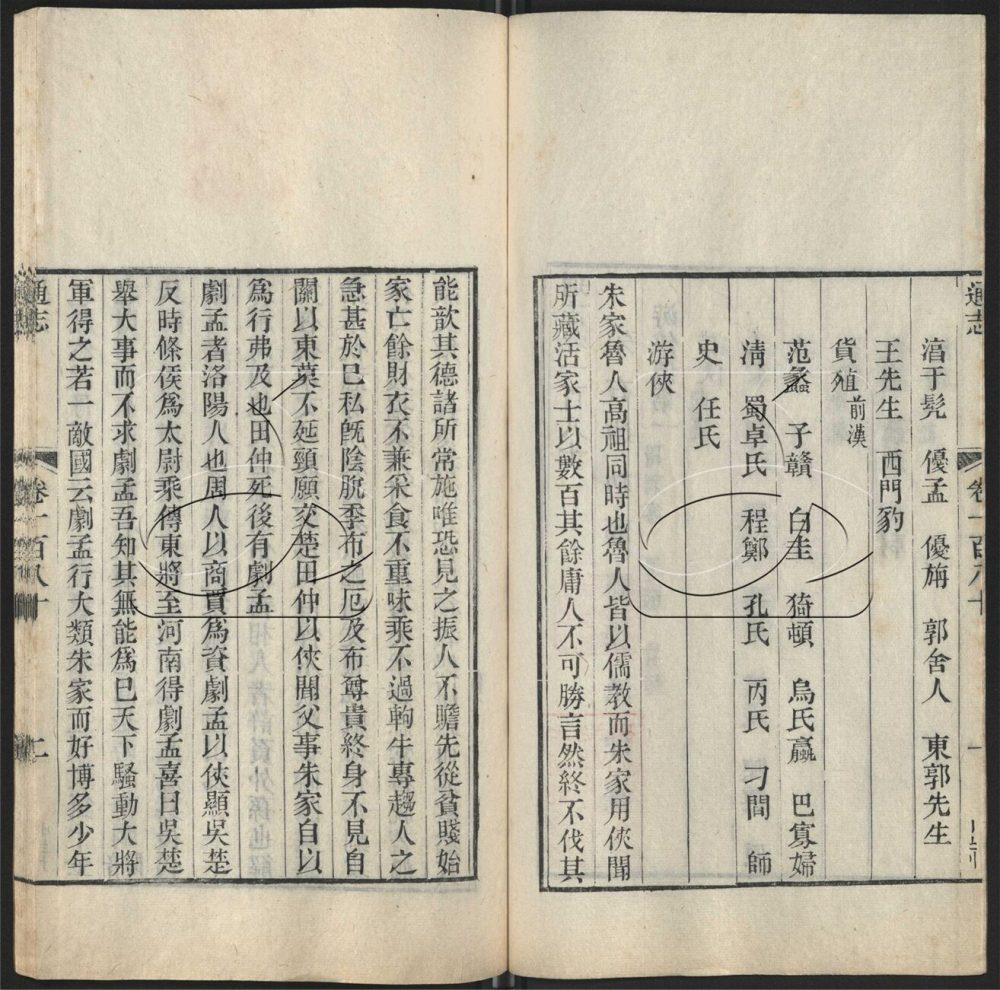 通志 卷一百八十 一
淳于髡 優孟 優旃 郭舍人 東郭先生
王先生 西門豹
貨殖前漢
范蠡 子贛 白圭 猗頓 烏氏蠃 巴寡婦
淸 蜀卓氏 程鄭 孔氏 丙氏 刁閒 師
史 任氏
游俠
朱家魯人高祖同時也魯人皆以儒教而朱家用俠聞
所藏活豪士以數百其餘庸人不可勝言然終不伐其
能歆其德諸所常施唯恐見之振人不贍先從貧賤始
家亡餘財衣不兼采食不重味乘不過軥牛專趨人之
急甚於已私旣陰脫季布之厄及布尊貴終身不見自
關以東莫不延頸願交楚田仲以俠聞父事朱家自以
爲行弗及也田仲死後有劇孟
劇孟者洛陽人也周人以商賈爲資劇孟以俠顯吳楚
反時條侯爲太尉乘傳東將至河南得劇孟喜曰吳楚
舉大事而不求劇孟吾知其無能爲已天下騷動大將
軍得之若一敵國云劇孟行大類朱家而好博多少年
通志 卷一百八十 二